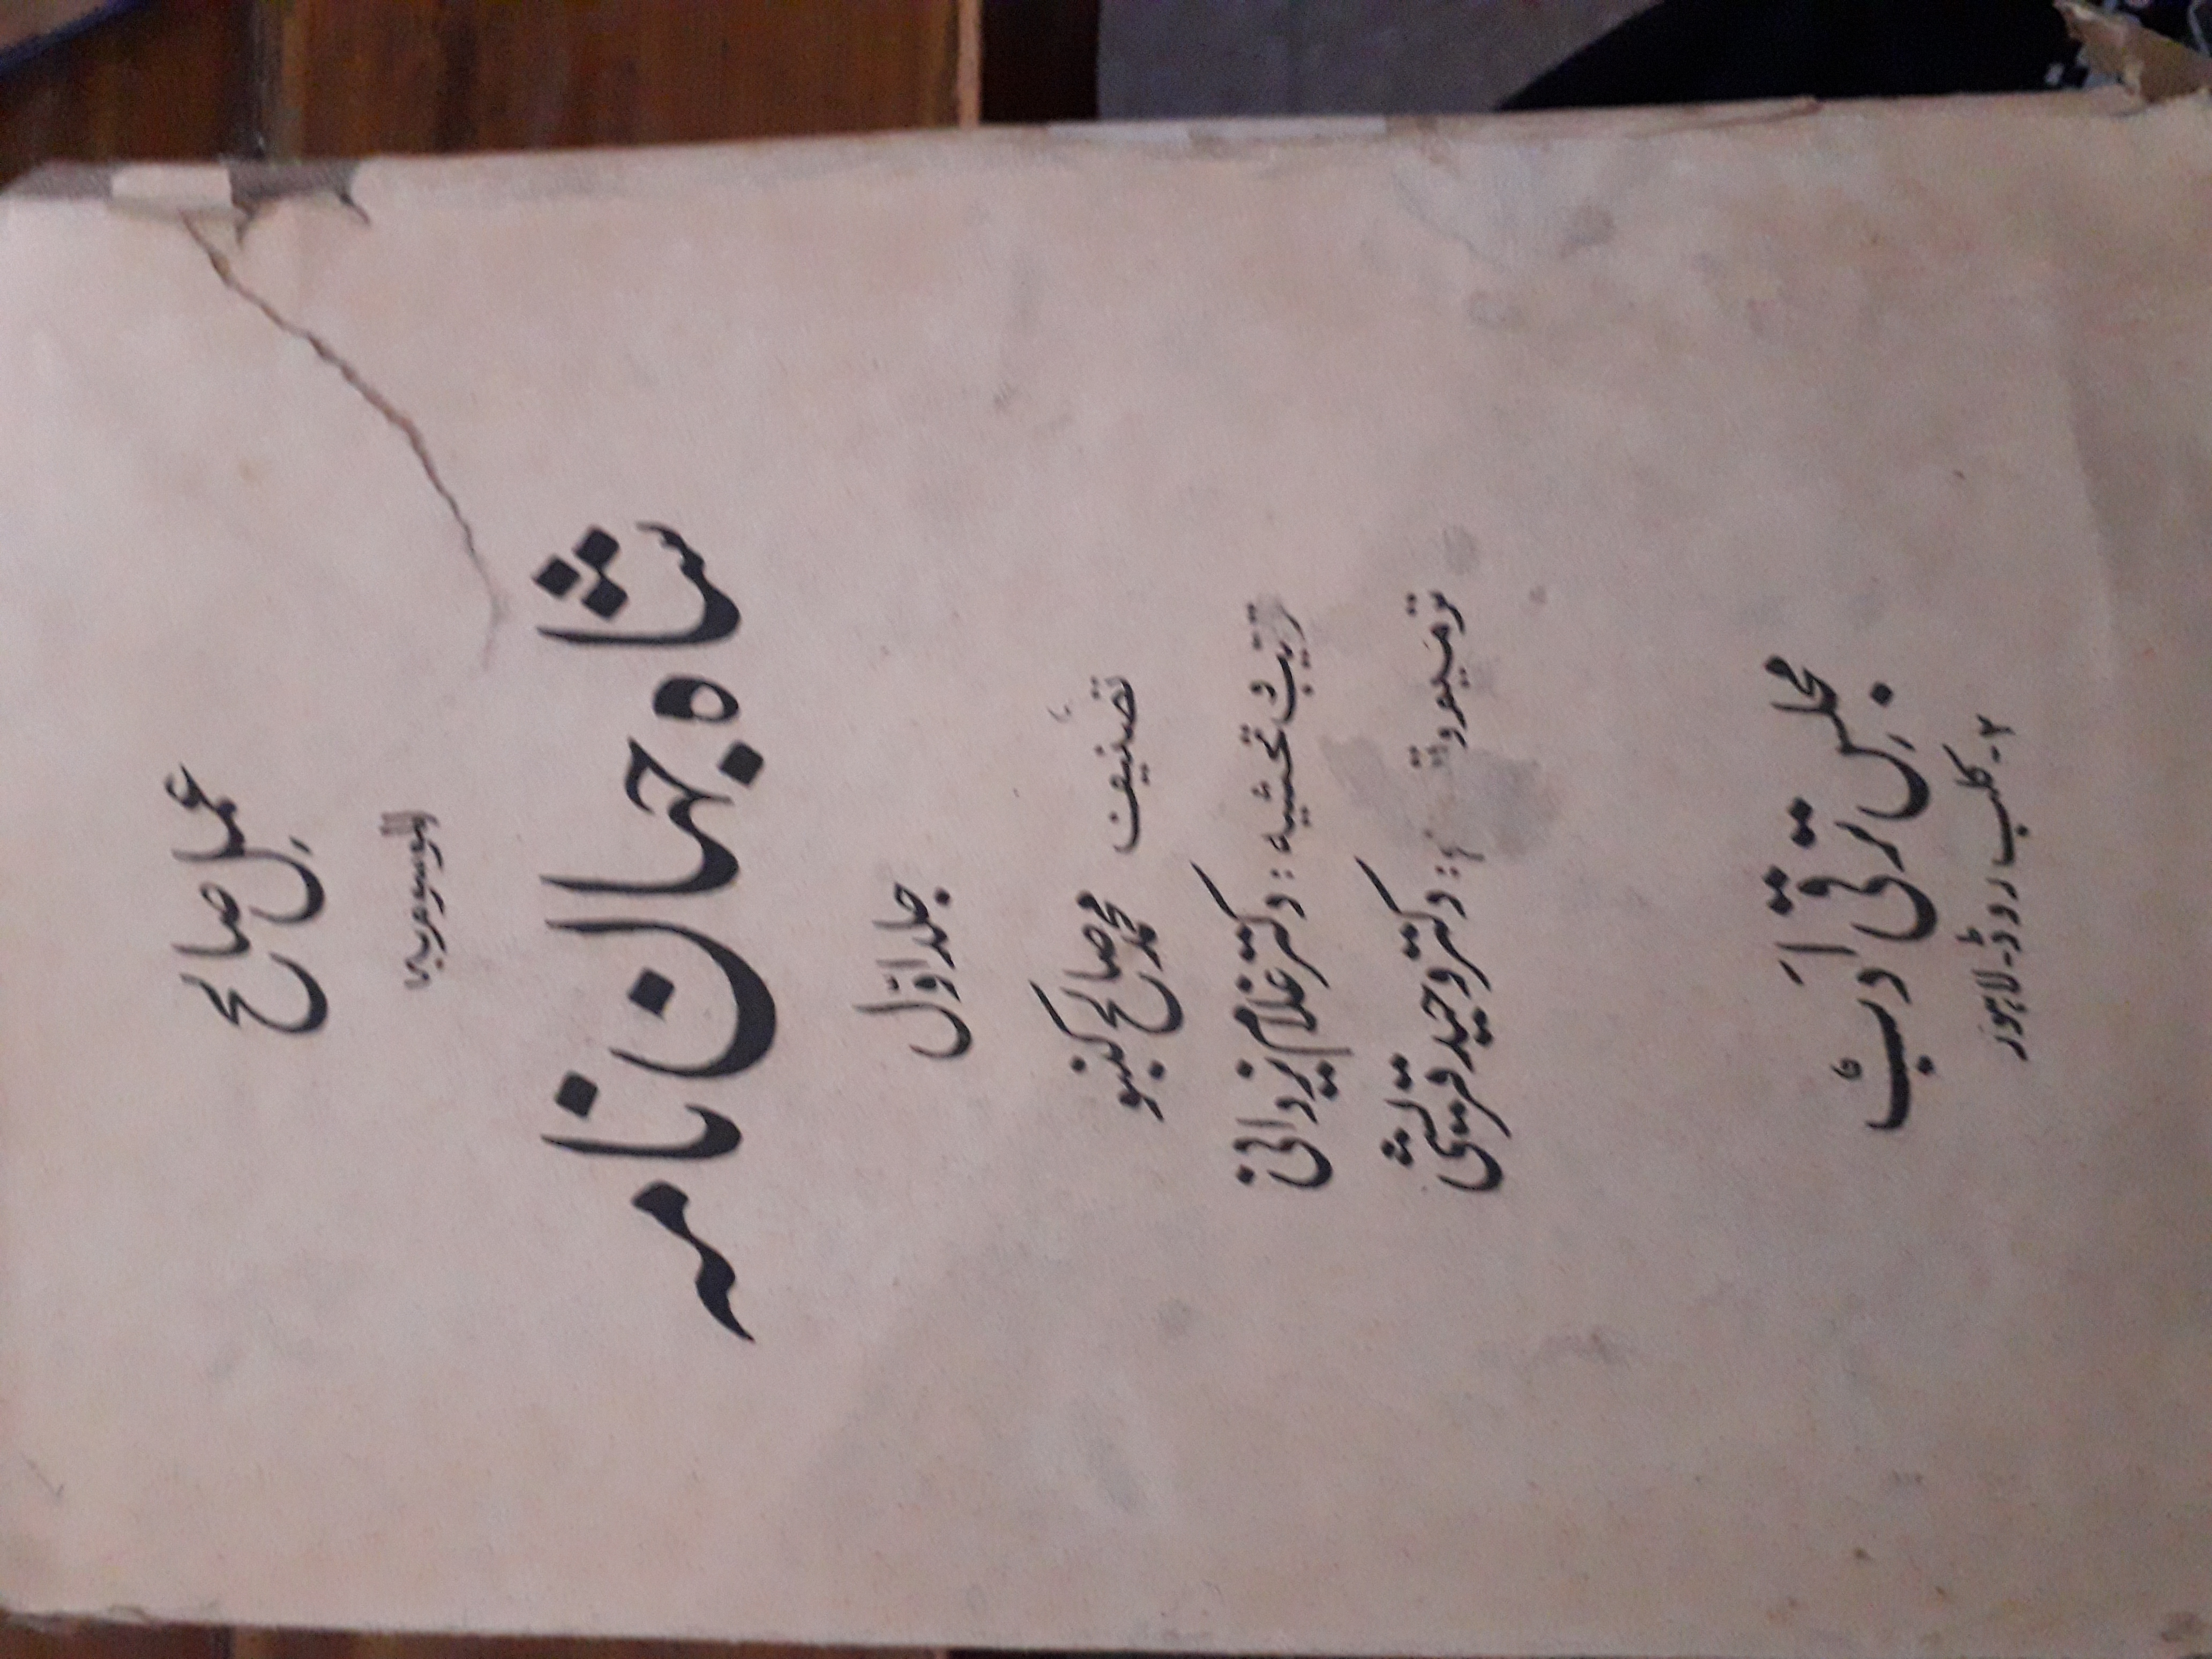 عملِ صالح
الموسوم بہ
شاہ جہان نامہ
جلد اوّل
تصنیف
محمد صالح کنبو
ترتیب و تحشیہ : دکتر غلام یزدانی
ترمیم و : دکتر وحید قریشی
مجلسِ ترقی ادب
۲۔ کلب روڈ۔ لاہور